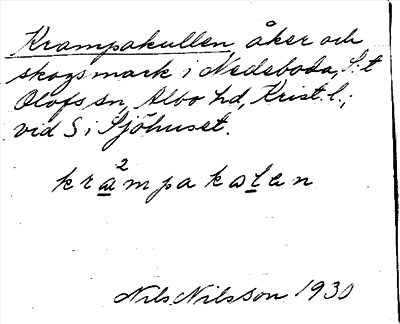 Krampakullen, åker och
skogsmark i Nedraboda, S:t
Olofs sn, Albo hd, Krist. l.;
vid S i Sjöhuset.
kra²mpakələn
Nils Nilsson 1930